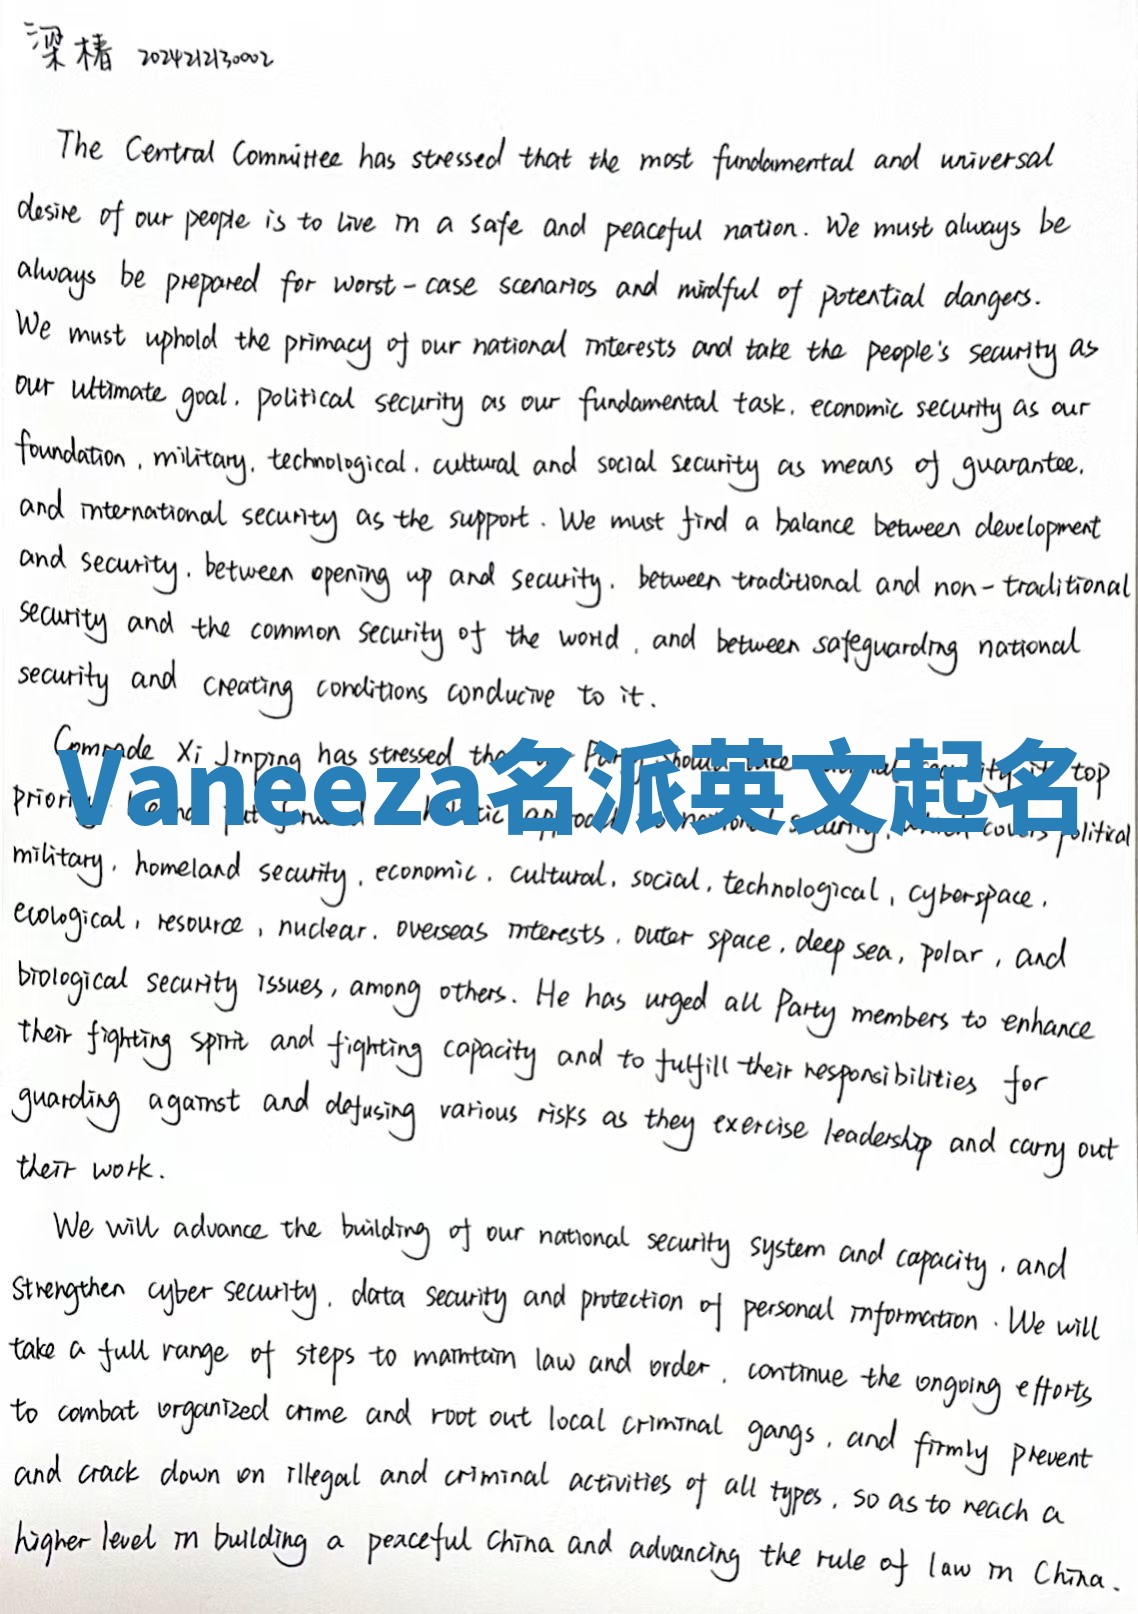 梁椿 2024212130002
The Central Committee has stressed that the most fundamental and universal
desire of our people is to live in a safe and peaceful nation. We must always be
always be prepared for worst-case scenarios and mindful of potential dangers.
We must uphold the primacy of our national interests and take the people's security as
our ultimate goal, political security as our fundamental task, economic security as our
foundation, military, technological, cultural and social security as means of guarantee,
and international security as the support. We must find a balance between development
and security, between opening up and security, between traditional and non-traditional
security and the common security of the world, and between safeguarding national
security and creating conditions conducive to it.
Comrade Xi Jinping has stressed top
Vaneeza名派英文起名
political
military, homeland security, economic, cultural, social, technological, cyberspace,
ecological, resource, nuclear, overseas interests, outer space, deep sea, polar, and
biological security issues, among others. He has urged all Party members to enhance
their fighting spirit and fighting capacity and to fulfill their responsibilities for
guarding against and defusing various risks as they exercise leadership and carry out
their work.
We will advance the building of our national security system and capacity, and
strengthen cyber security, data security and protection of personal information. We will
take a full range of steps to maintain law and order, continue the ongoing efforts
to combat organized crime and root out local criminal gangs, and firmly prevent
and crack down on illegal and criminal activities of all types, so as to reach a
higher level in building a peaceful China and advancing the rule of law in China.